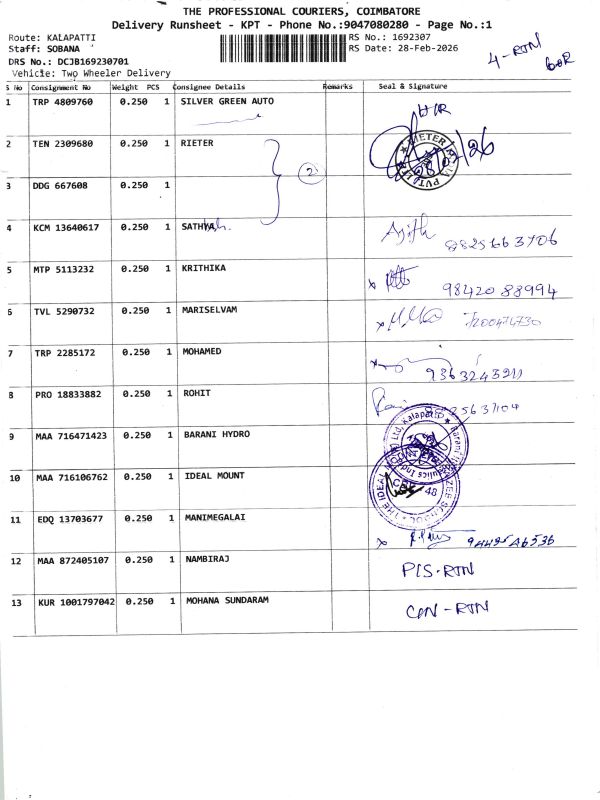 THE PROFESSIONAL COURIERS, COIMBATORE
Delivery Runsheet - KPT - Phone No.:9047080280 - Page No.:1
Route: KALAPATTI
Staff: SOBANA
DRS No.: DCJB169230701
Vehicle: Two Wheeler Delivery
RS No.: 1692307
RS Date: 28-Feb-2026
4-RTN
S No Consignment No Weight PCS Consignee Details Remarks Seal & Signature
1 TRP 4809760 0.250 1 SILVER GREEN AUTO
2 TEN 2309680 0.250 1 RIETER
3 DDG 667608 0.250 1
2
4 KCM 13640617 0.250 1 SATHYA Ajith 9825663706
5 MTP 5113232 0.250 1 KRITHIKA x 98420 88994
6 TVL 5290732 0.250 1 MARISELVAM x 7200474730
7 TRP 2285172 0.250 1 MOHAMED x 9363243211
8 PRO 18833882 0.250 1 ROHIT
9 MAA 716471423 0.250 1 BARANI HYDRO
10 MAA 716106762 0.250 1 IDEAL MOUNT
11 EDQ 13703677 0.250 1 MANIMEGALAI x
12 MAA 872405107 0.250 1 NAMBIRAJ PIS-RTN
13 KUR 1001797042 0.250 1 MOHANA SUNDARAM CAN-RTN